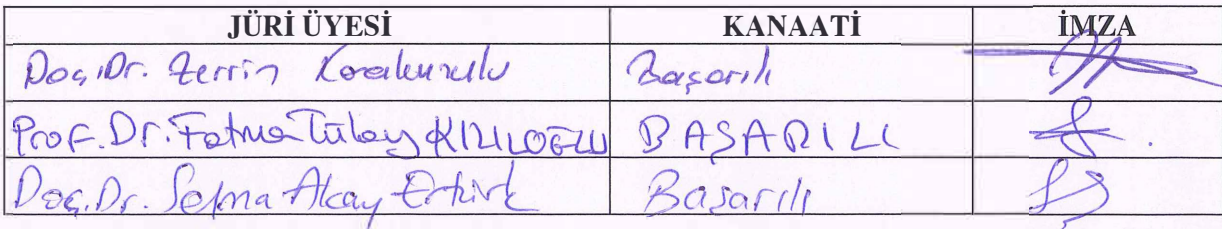 JÜRİ ÜYESİ KANAATİ İMZA
Doç.Dr. Zerrin Başarılı
Prof.Dr. Fatma Tülay KIZILOĞLU BAŞARILI
Doç.Dr. Selma Akay Ertürk Başarılı